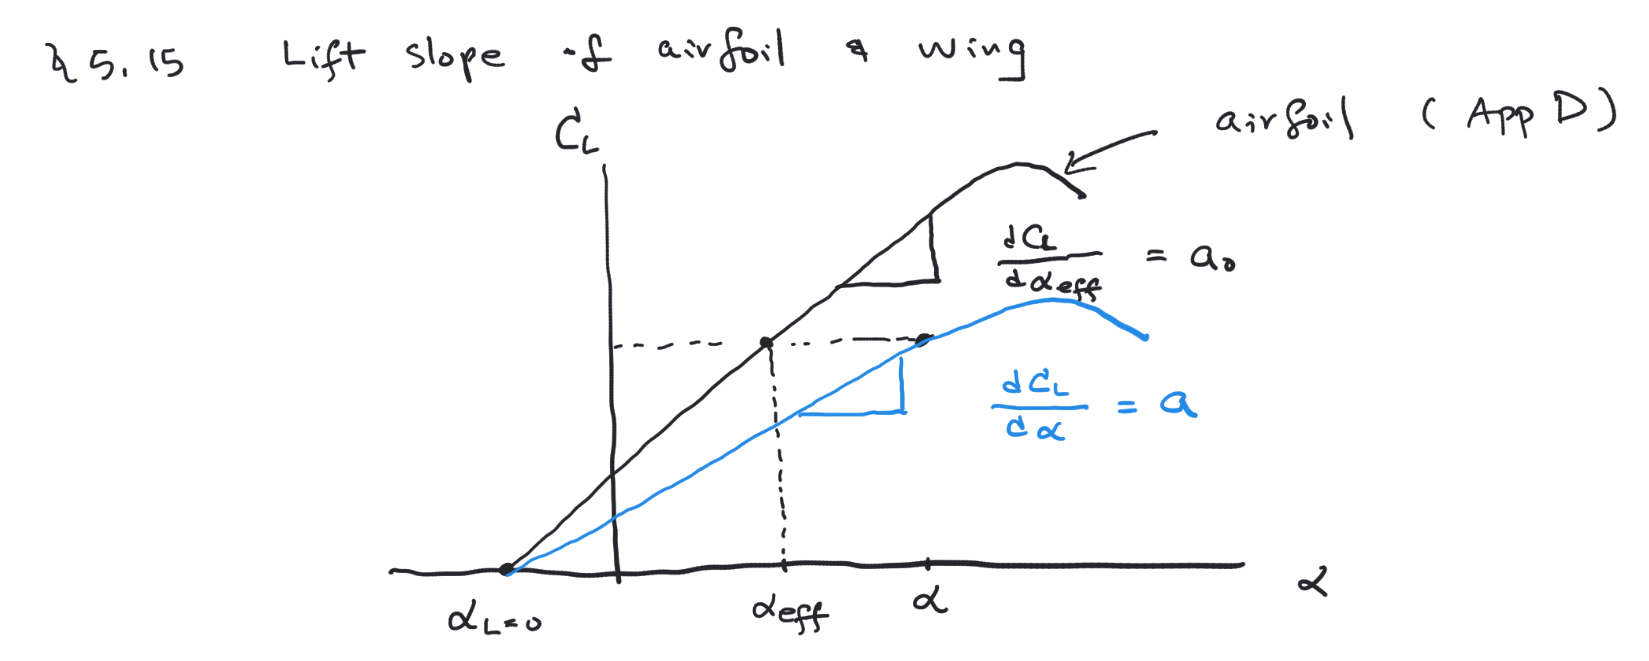 § 5.15 Lift slope of airfoil & wing
C_L
airfoil (App D)
dC_L/dα_eff = a_0
dC_L/dα = a
α
α_L=0 α_eff α